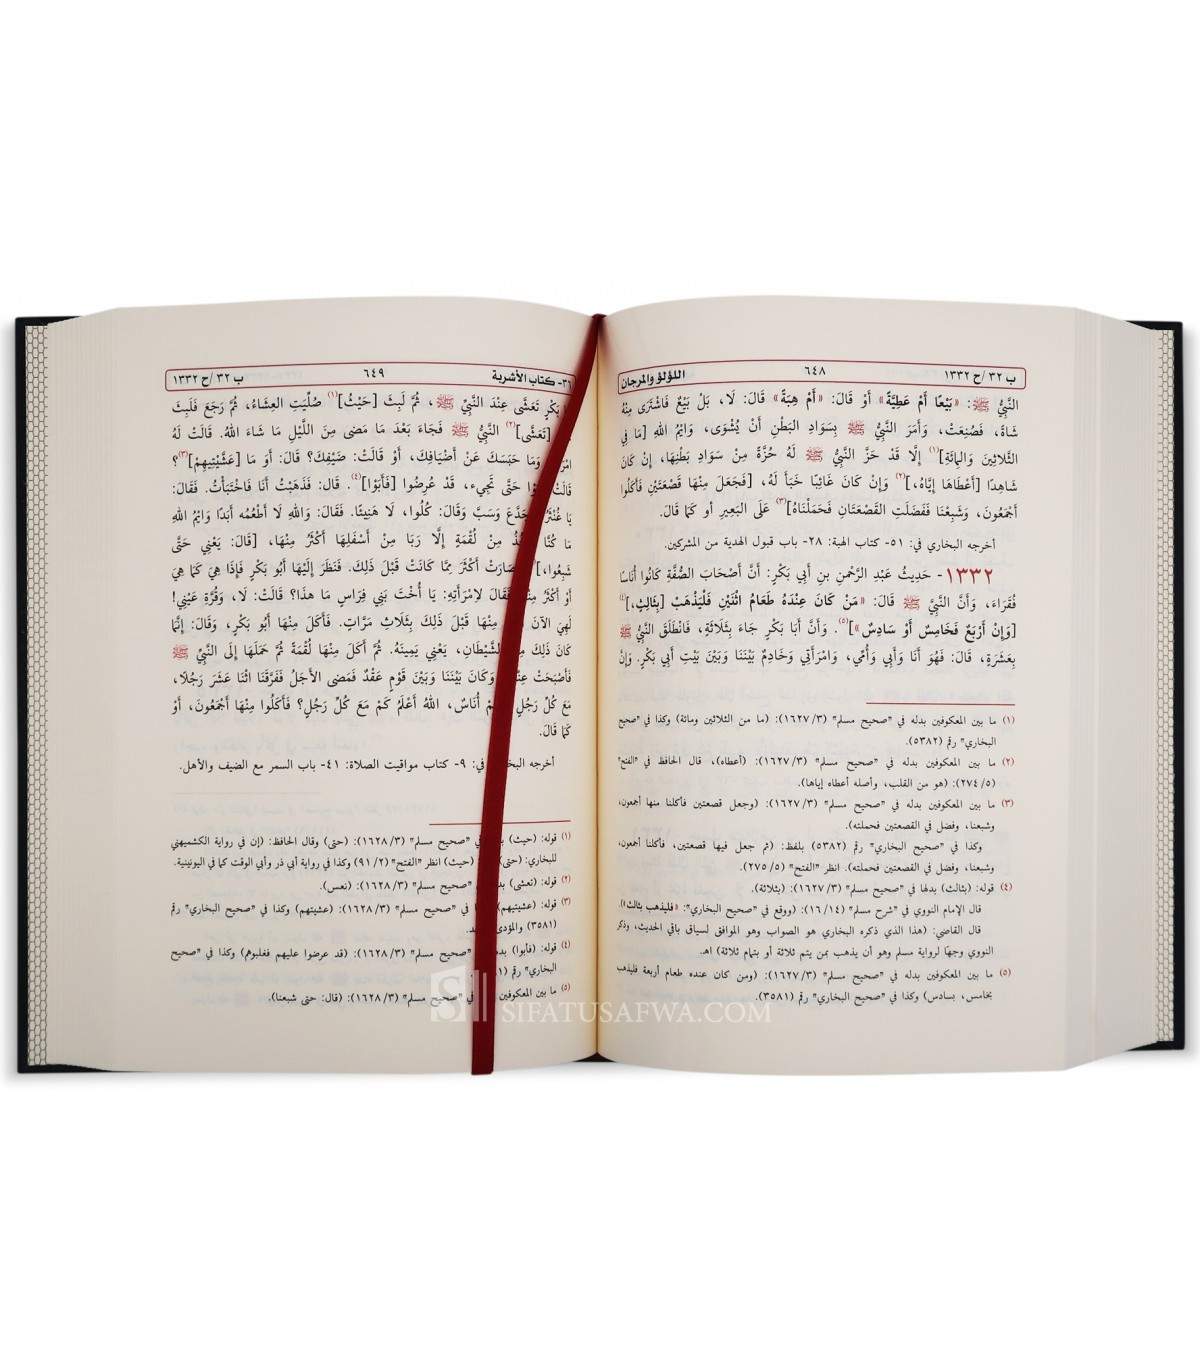 ب ٣٢ /ح ١٣٣٢ ٦٤٨ اللؤلؤ والمرجان
النَّبِيُّ ﷺ: «بَيْعًا أَمْ عَطِيَّةً» أَوْ قَالَ: «أَمْ هِبَةً» قَالَ: لَا، بَلْ بَيْعٌ فَاشْتَرَى مِنْهُ
شَاةً، فَصُنِعَتْ، وَأَمَرَ النَّبِيُّ ﷺ بِسَوَادِ البَطْنِ أَنْ يُشْوَى، وَايْمُ اللهِ [مَا فِي
الثَّلَاثِينَ وَالمِائَةِ](١) إِلَّا قَدْ حَزَّ النَّبِيُّ ﷺ لَهُ حُزَّةً مِنْ سَوَادِ بَطْنِهَا، إِنْ كَانَ
شَاهِدًا [أَعْطَاهَا إِيَّاهُ،](٢) وَإِنْ كَانَ غَائِبًا خَبَأَ لَهُ، [فَجَعَلَ مِنْهَا قَصْعَتَيْنِ فَأَكَلُوا
أَجْمَعُونَ، وَشَبِعْنَا فَفَضَلَتِ القَصْعَتَانِ فَحَمَلْنَاهُ](٣) عَلَى البَعِيرِ أو كَمَا قَالَ.
أخرجه البخاري في: ٥١- كتاب الهبة: ٢٨- باب قبول الهدية من المشركين.
١٣٣٢- حَدِيثُ عَبْدِ الرَّحْمنِ بنِ أَبِي بَكْرٍ: أَنَّ أَصْحَابَ الصُّفَّةِ كَانُوا أُنَاسًا
فُقَرَاءَ، وَأَنَّ النَّبِيَّ ﷺ قَالَ: «مَنْ كَانَ عِنْدَهُ طَعَامُ اثْنَيْنِ فَلْيَذْهَبْ [بِثَالِثٍ،](٤)
[وَإِنْ أَرْبَعٌ فَخَامِسٌ أَوْ سَادِسٌ»](٥). وَأَنَّ أَبَا بَكْرٍ جَاءَ بِثَلَاثَةٍ، فَانْطَلَقَ النَّبِيُّ ﷺ
بِعَشَرَةٍ، قَالَ: فَهُوَ أَنَا وَأَبِي وَأُمِّي، وَامْرَأَتِي وَخَادِمٌ بَيْنَنَا وَبَيْنَ بَيْتِ أَبِي بَكْرٍ. وَإِنَّ
(١) ما بين المعكوفين بدله في "صحيح مسلم" (٣/ ١٦٢٧): (ما من الثلاثين ومائة) وكذا في "صحيح
البخاري" رقم (٥٣٨٢).
(٢) ما بين المعكوفين بدله في "صحيح مسلم" (٣/ ١٦٢٧): (أعطاه)، قال الحافظ في "الفتح"
(٥/ ٢٧٤): (هو من القلب، وأصله أعطاه إياها).
(٣) ما بين المعكوفين بدله في "صحيح مسلم" (٣/ ١٦٢٧): (وجعل قصعتين فأكلنا منها أجمعون،
وشبعنا، وفضل في القصعتين فحملته).
وكذا في "صحيح البخاري" رقم (٥٣٨٢) بلفظ: (ثم جعل فيها قصعتين، فأكلنا أجمعون،
وشبعنا، وفضل في القصعتين فحملته). انظر "الفتح" (٥/ ٢٧٥).
(٤) قوله: (بثالث) بدلها في "صحيح مسلم" (٣/ ١٦٢٧): (بثلاثة).
قال الإمام النووي في "شرح مسلم" (١٤/ ١٦): (ووقع في "صحيح البخاري": «فليذهب بثالث»).
قال القاضي: (هذا الذي ذكره البخاري هو الصواب وهو الموافق لسياق باقي الحديث، وذكر
النووي وجهًا لرواية مسلم وهو أن يذهب بمن يتم ثلاثة أو بتمام ثلاثة) اهـ.
(٥) ما بين المعكوفين بدله في "صحيح مسلم" (٣/ ١٦٢٧): (ومن كان عنده طعام أربعة فليذهب
بخامس، بسادس) وكذا في "صحيح البخاري" رقم (٣٥٨١).
٣٦- كتاب الأشربة ٦٤٩ ب ٣٢ /ح ١٣٣٢
بَكْرٍ تَعَشَّى عِنْدَ النَّبِيِّ ﷺ، ثُمَّ لَبِثَ [حَيْثُ](١) صُلِّيَتِ العِشَاءُ، ثُمَّ رَجَعَ فَلَبِثَ
[تَعَشَّى](٢) النَّبِيُّ ﷺ فَجَاءَ بَعْدَ مَا مَضَى مِنَ اللَّيْلِ مَا شَاءَ اللهُ. قَالَتْ لَهُ
وَمَا حَبَسَكَ عَنْ أَضْيَافِكَ، أَوْ قَالَتْ: ضَيْفِكَ؟ قَالَ: أَوَ مَا [عَشَّيْتِيهِمْ](٣)؟
قَالَتْ حَتَّى تَجِيءَ، قَدْ عُرِضُوا [فَأَبَوْا](٤). قَالَ: فَذَهَبْتُ أَنَا فَاخْتَبَأْتُ. فَقَالَ:
يَا غُنْثَرُ وَسَبَّ وَقَالَ: كُلُوا، لَا هَنِيئًا. فَقَالَ: وَاللهِ لَا أَطْعَمُهُ أَبَدًا وَايْمُ اللهِ
مَا كُنَّا مِنْ لُقْمَةٍ إِلَّا رَبَا مِنْ أَسْفَلِهَا أَكْثَرُ مِنْهَا، [قَالَ: يَعْنِي حَتَّى
شَبِعُوا،] صَارَتْ أَكْثَرَ مِمَّا كَانَتْ قَبْلَ ذَلِكَ. فَنَظَرَ إِلَيْهَا أَبُو بَكْرٍ فَإِذَا هِيَ كَمَا هِيَ
أَوْ أَكْثَرُ فَقَالَ لِامْرَأَتِهِ: يَا أُخْتَ بَنِي فِرَاسٍ مَا هذَا؟ قَالَتْ: لَا، وَقُرَّةِ عَيْنِي!
لَهِيَ الآنَ مِنْهَا قَبْلَ ذَلِكَ بِثَلَاثِ مَرَّاتٍ. فَأَكَلَ مِنْهَا أَبُو بَكْرٍ، وَقَالَ: إِنَّمَا
كَانَ ذَلِكَ الشَّيْطَانِ، يَعْنِي يَمِينَهُ. ثُمَّ أَكَلَ مِنْهَا لُقْمَةً ثُمَّ حَمَلَهَا إِلَى النَّبِيِّ ﷺ
فَأَصْبَحَتْ وَكَانَ بَيْنَنَا وَبَيْنَ قَوْمٍ عَقْدٌ فَمَضَى الأَجَلُ فَفَرَّقَنَا اثْنَا عَشَرَ رَجُلًا،
مَعَ كُلِّ رَجُلٍ أُنَاسٌ، اللهُ أَعْلَمُ كَمْ مَعَ كُلِّ رَجُلٍ؟ فَأَكَلُوا مِنْهَا أَجْمَعُونَ، أَوْ
كَمَا قَالَ.
أخرجه في: ٩- كتاب مواقيت الصلاة: ٤١- باب السمر مع الضيف والأهل.
(١) قوله: (حيث) في "صحيح مسلم" (٣/ ١٦٢٨): (حتى) وقال الحافظ: (إن في رواية الكشميهني
للبخاري: (حتى) (حيث) انظر "الفتح" (٢/ ٩١) وكذا في رواية أبي ذر وأبي الوقت كما في اليونينية.
(٢) قوله: (تعشى) في "صحيح مسلم" (٣/ ١٦٢٨): (نعس).
(٣) قوله: (عشيتيهم) في "صحيح مسلم" (٣/ ١٦٢٨): (عشيتهم) وكذا في "صحيح البخاري" رقم
(٣٥٨١) والمؤدى
(٤) قوله: (فأبوا) في "صحيح مسلم" (٣/ ١٦٢٨): (قد عرضوا عليهم فغلبوهم) وكذا في "صحيح
البخاري" رقم
(٥) ما بين المعكوفين في "صحيح مسلم" (٣/ ١٦٢٨): (قال: حتى شبعنا).
SIFATUSAFWA.COM